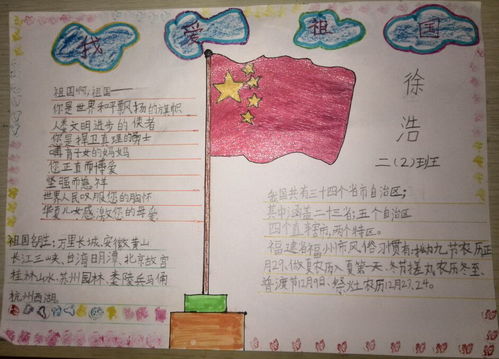 我爱祖国
徐浩
二(2)班
祖国啊,祖国——
你是世界和平飘扬的旗帜
人类文明进步的使者
你是捍卫真理的勇士
哺育子女的妈妈
您正直而博爱
坚强而慈祥
世界人民叹服您的胸怀
华夏儿女感激您的母爱
祖国名胜:万里长城、安徽黄山
长江三峡、台湾日月潭、北京故宫
桂林山水、苏州园林、秦陵兵马俑
杭州西湖。
我国共有三十四个省市自治区;
其中涵盖二十三省;五个自治区
四个直辖市,两个特区。
福建省福州市风俗习惯有:拗九节农历正
月29、做夏农历、夏第一天、冬节搓丸农历冬至、
普渡节12月9日、祭灶农历12月23、24。